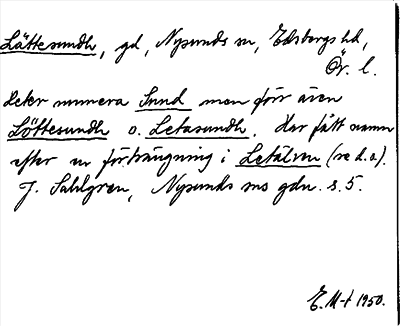 Lättesundh, gd, Nysunds sn, Edsbergs hd,
Ör. l.
Heter numera Sund men förr även
Löttesundh o. Letasundh. Har fått namn
efter en förträngning i Letälven (se d. o.).
J. Sahlgren, Nysunds sns gdn. s. 5.
E. M-t 1950.